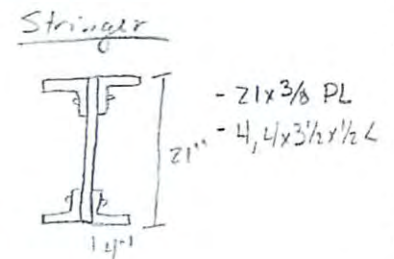 Stringer
- 21x3/8 PL
- 4, 4x3 1/2x1/2 L
21"
14"